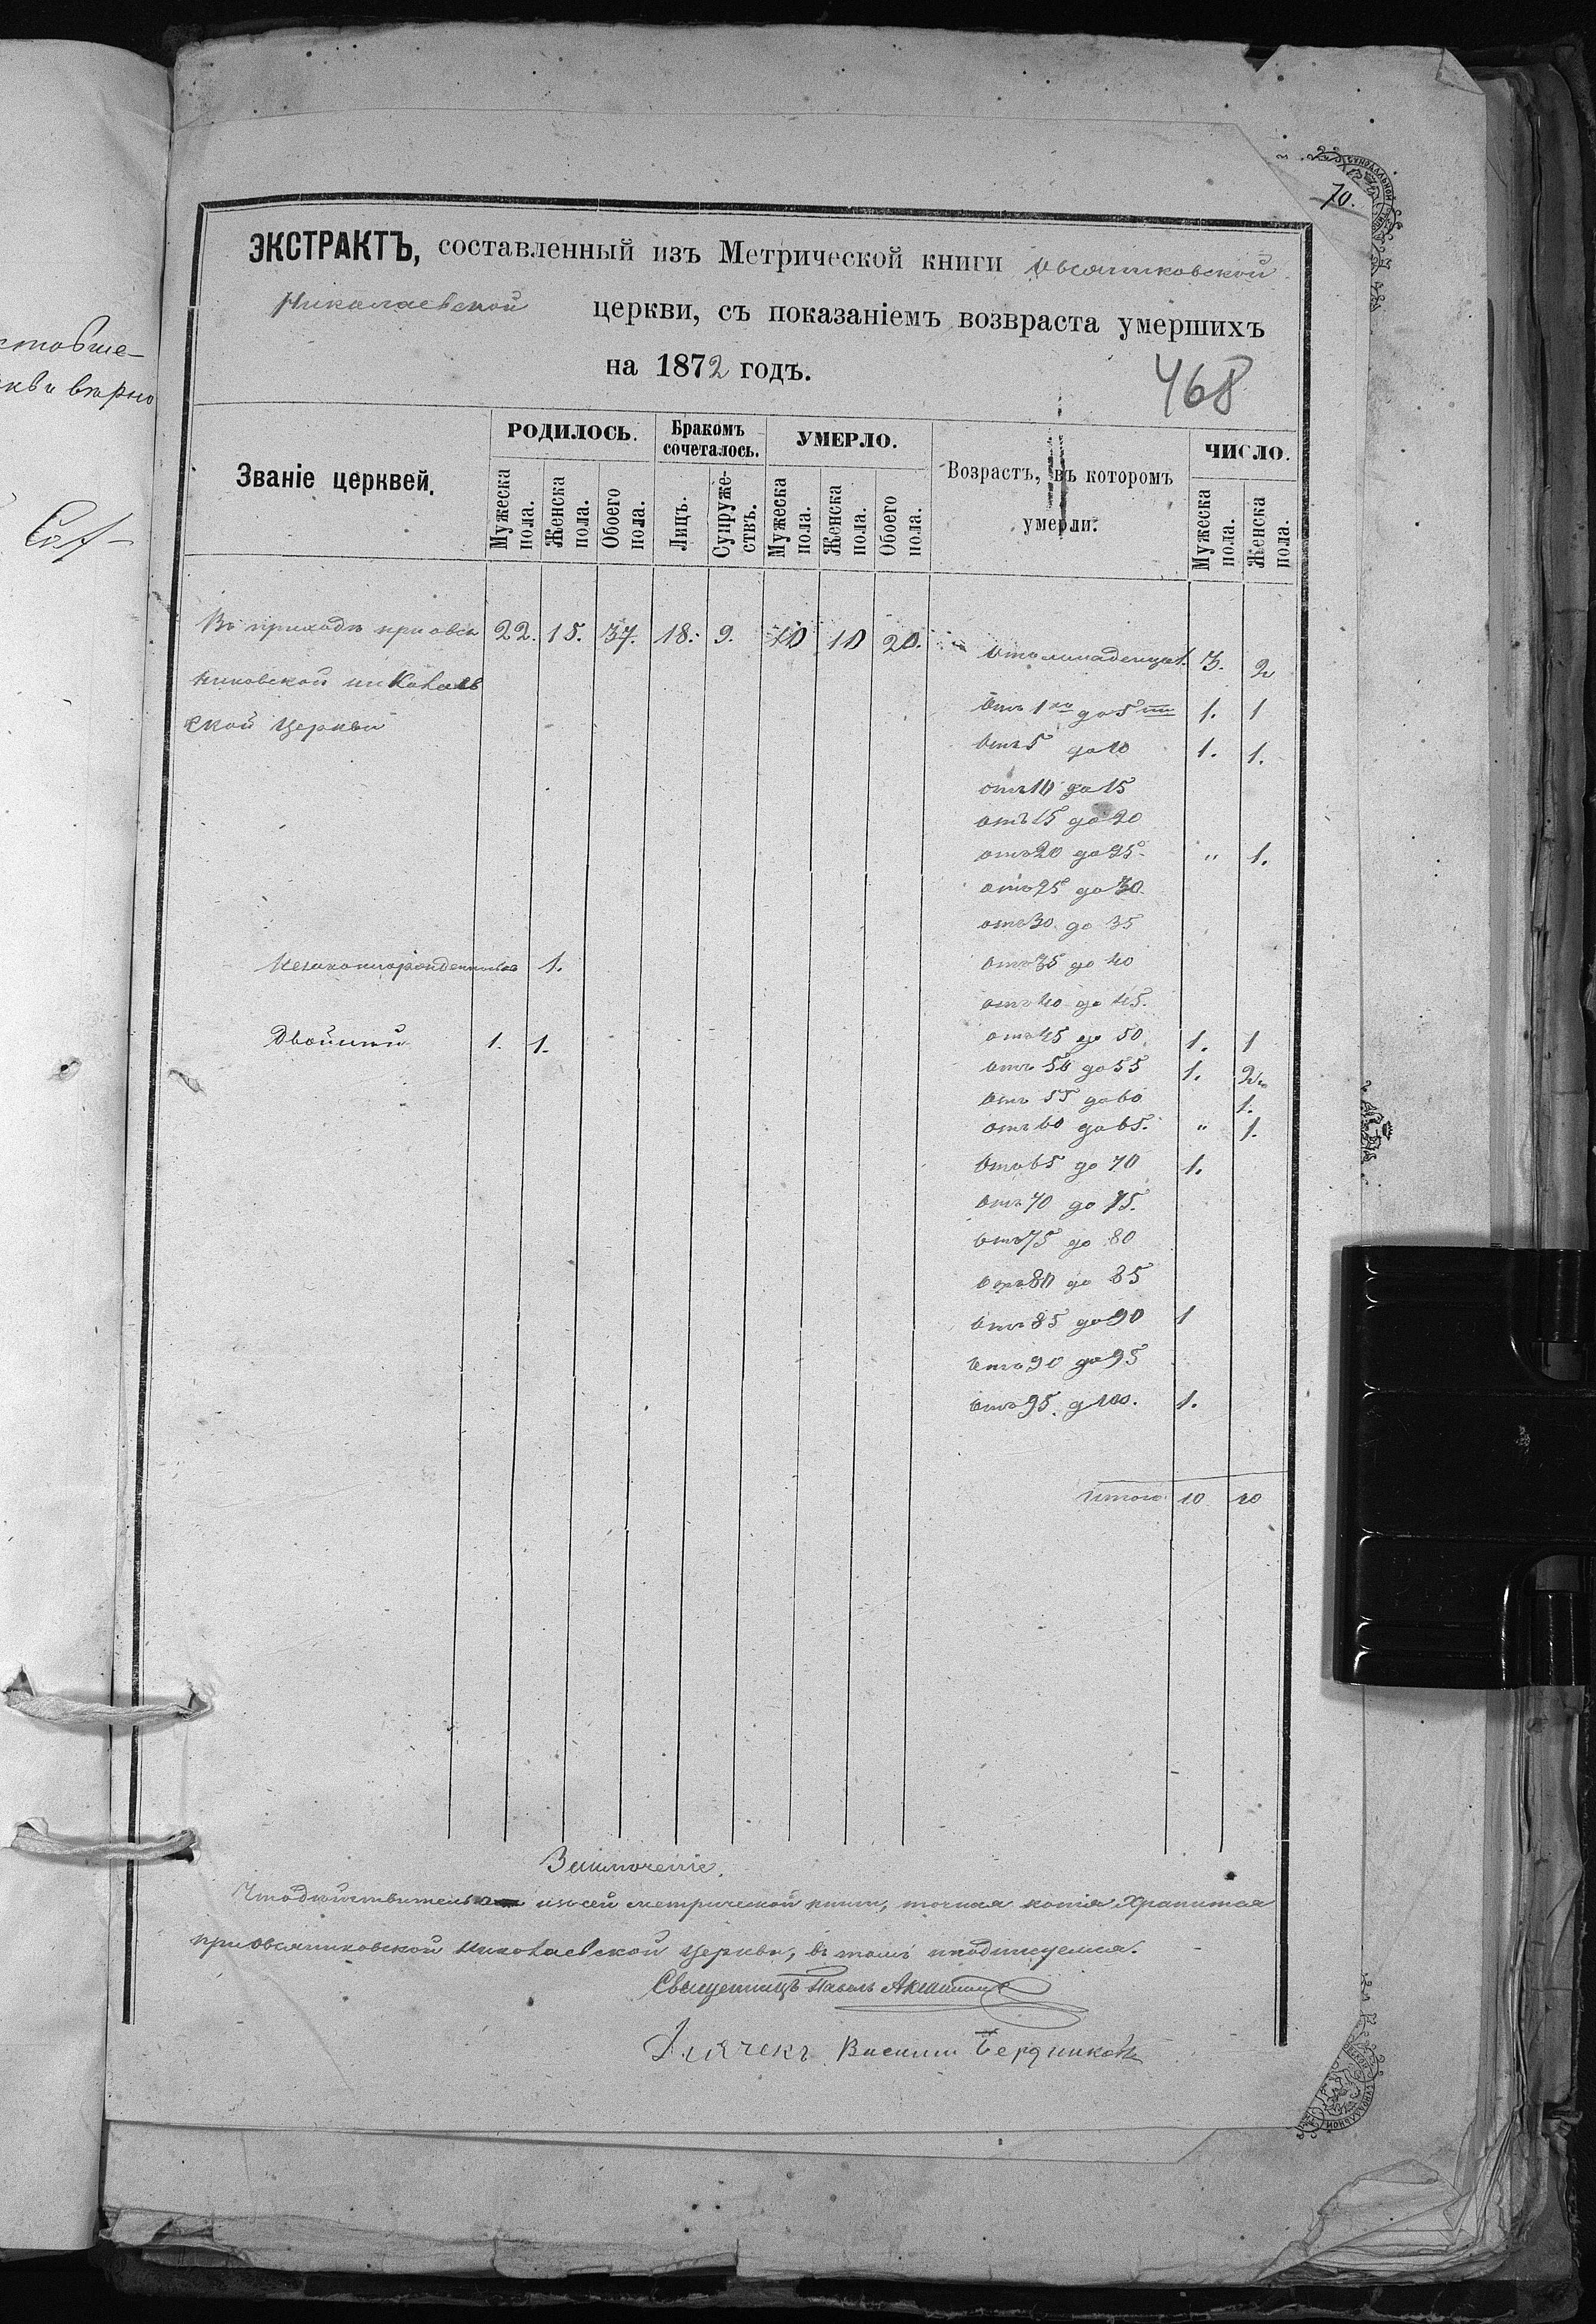 70.
ЭКСТРАКТЪ, составленный изъ Метрической книги Овсянниковской
Николаевской церкви, съ показаніемъ возвраста умершихъ
на 1872 годъ.
468
Званіе церквей.
РОДИЛОСЬ.
Бракомъ сочеталось.
УМЕРЛО.
Возрастъ, въ которомъ умерли:
ЧИСЛО.
Мужеска пола.
Женска пола.
Обоего пола.
Лицъ.
Супружествъ.
Мужеска пола.
Женска пола.
Обоего пола.
Мужеска пола.
Женска пола.
Въ приходѣ при овся 22. 15. 37. 18. 9. 10 10 20.
никовской николаев
ской церкви
От младенца 3. 2
Отъ 1го до 5ти 1. 1
Отъ 5 до 10 1. 1.
отъ 10 до 15
отъ 15 до 20
отъ 20 до 25 " 1.
отъ 25 до 30
отъ 30 до 35
Незаконнорожденныхъ 1.
отъ 35 до 40
отъ 40 до 45.
Двойники 1. 1.
отъ 45 до 50 1. 1
отъ 50 до 55 1. 2
отъ 55 до 60 1.
отъ 60 до 65. " 1.
Отъ 65 до 70 1.
Отъ 70 до 75.
отъ 75 до 80
отъ 80 до 85
отъ 85 до 90 1
отъ 90 до 95
отъ 95 до 100. 1.
Итого 10 10
Заключеніе.
Что дѣйствительно изъ сей метрической книги, точная копія хранится
при Овсяниковской Николаевской церкви, въ томъ и подписуемся.
Священникъ Павелъ
Дьячекъ Василій Бердниковъ